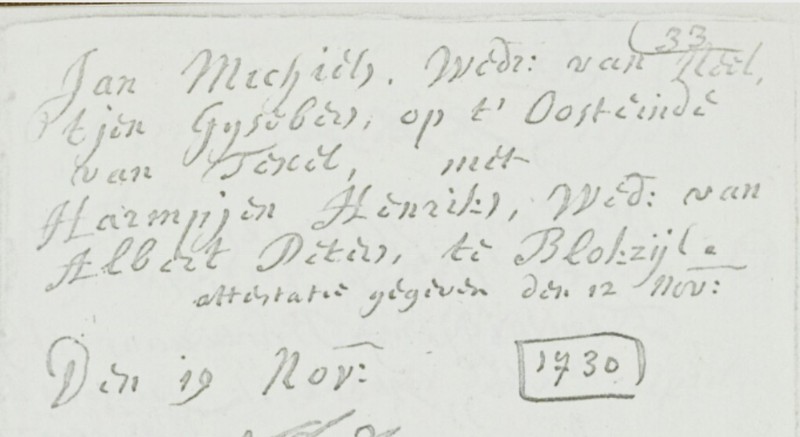 33
Jan Michiels. Wedr: van Neel,
tjen Gysebers, op t' Oosteinde
van Texel, met
Harmpjen Henriks, Wed: van
Albert Peters, te Blokzijl.
attestatie gegeven den 12 Nov:
Den 19 Nov: 1730